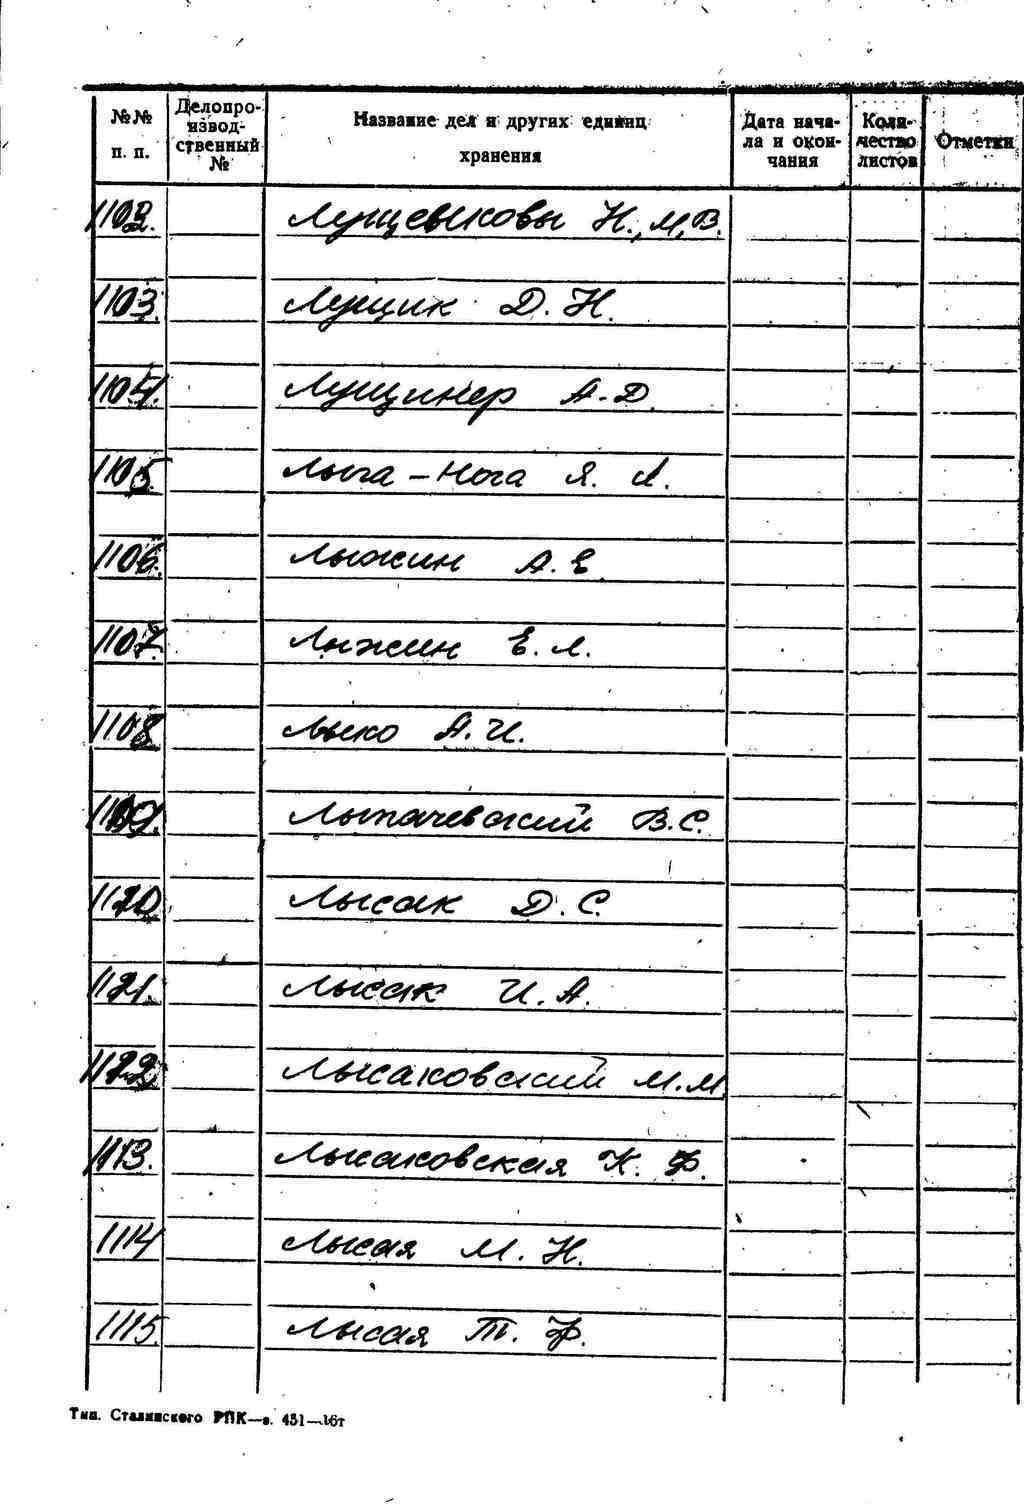 №№ п. п. Делопроизводственный № Название дел и других единиц хранения Дата начала и окончания Количество листов Отметки
1102. Лущевиковы Н., М, В.
1103. Лущик Д. Н.
1104. Лущинер А. Д.
1105. Лыга-Нога Я. Л.
1106. Лыжин А. Е.
1107. Лыжин Е. Л.
1108 Лыко А. И.
1109. Лыпачевский В. С.
1110 Лысак Д. С.
1111. Лысак И. А.
1112 Лысаковский М. М
1113. Лысаковская К. Ф.
1114 Лысая М. Н.
1115. Лысая Т. Ф.
Тип. Сталинского РПК—з. 451—16т